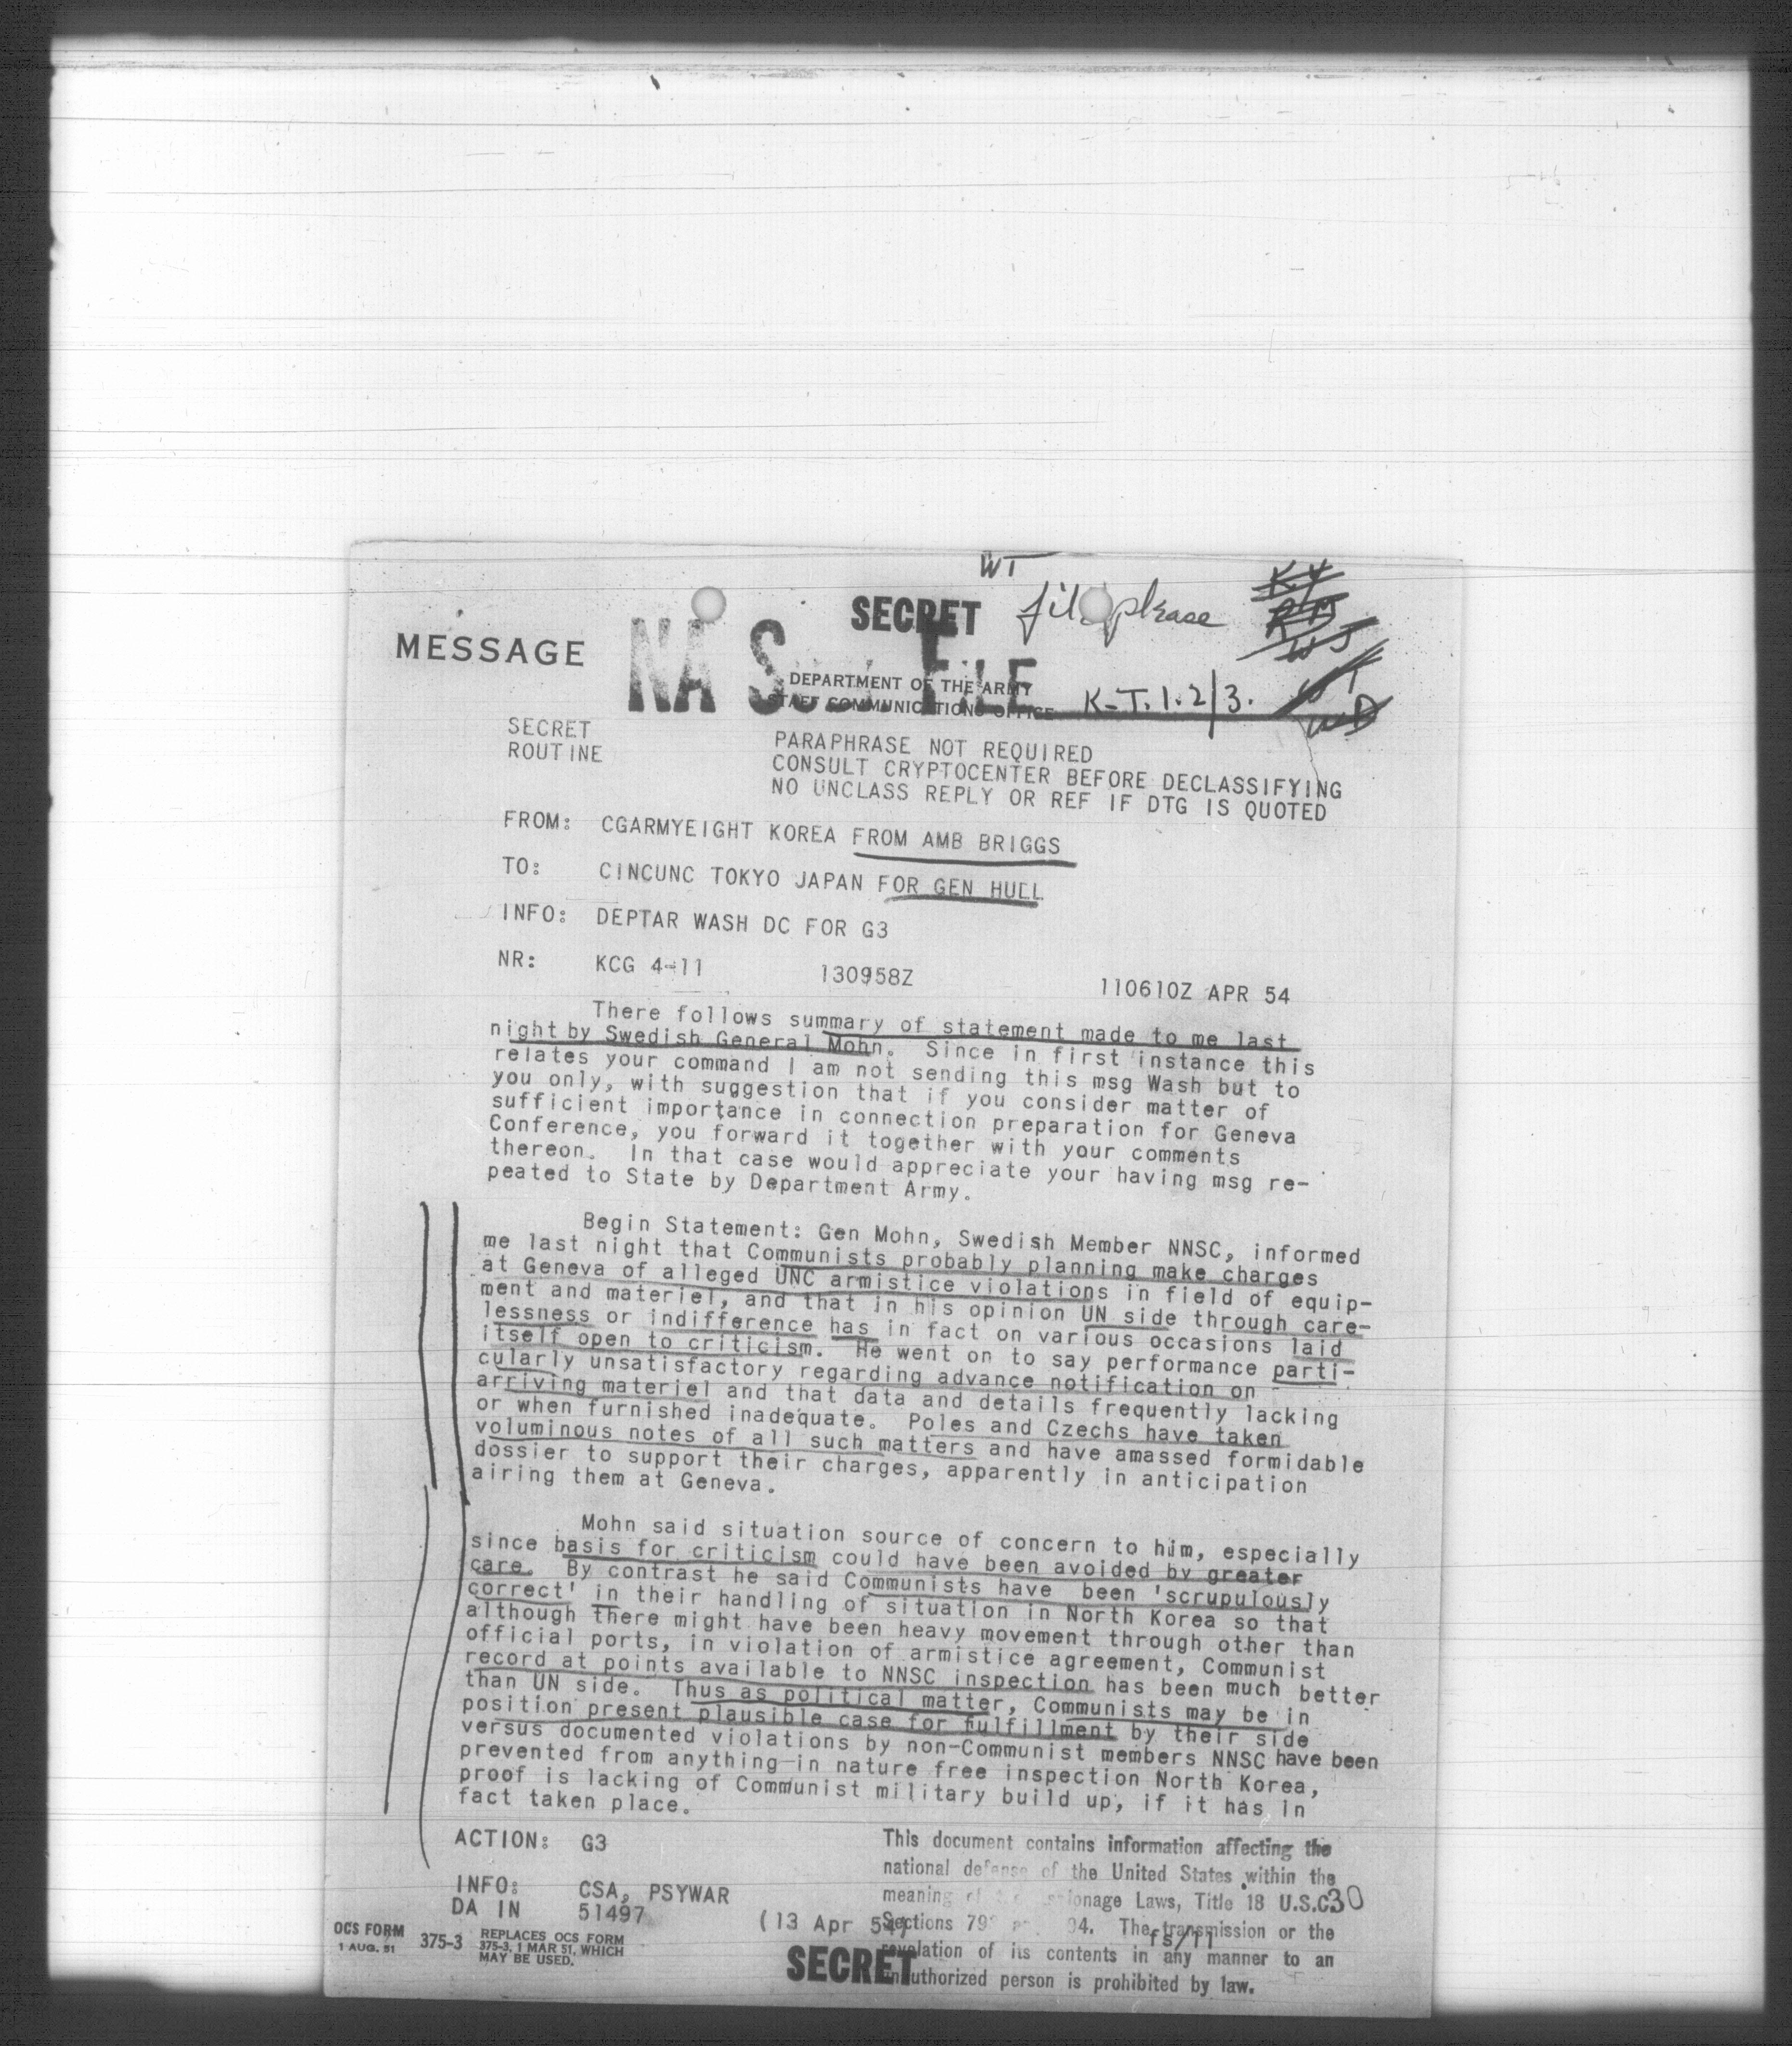 WT
SECRET file please
MESSAGE
NA
DEPARTMENT OF THE ARMY
STAFF COMMUNICATIONS OFFICE
K-T.1.2/3.
SECRET
ROUTINE
PARAPHRASE NOT REQUIRED
CONSULT CRYPTOCENTER BEFORE DECLASSIFYING
NO UNCLASS REPLY OR REF IF DTG IS QUOTED
FROM: CGARMYEIGHT KOREA FROM AMB BRIGGS
TO: CINCUNC TOKYO JAPAN FOR GEN HULL
INFO: DEPTAR WASH DC FOR G3
NR: KCG 4-11 130958Z 110610Z APR 54
There follows summary of statement made to me last
night by Swedish General Mohn. Since in first instance this
relates your command I am not sending this msg Wash but to
you only, with suggestion that if you consider matter of
sufficient importance in connection preparation for Geneva
Conference, you forward it together with your comments
thereon. In that case would appreciate your having msg re-
peated to State by Department Army.
Begin Statement: Gen Mohn, Swedish Member NNSC, informed
me last night that Communists probably planning make charges
at Geneva of alleged UNC armistice violations in field of equip-
ment and materiel, and that in his opinion UN side through care-
lessness or indifference has in fact on various occasions laid
itself open to criticism. He went on to say performance parti-
cularly unsatisfactory regarding advance notification on
arriving materiel and that data and details frequently lacking
or when furnished inadequate. Poles and Czechs have taken
voluminous notes of all such matters and have amassed formidable
dossier to support their charges, apparently in anticipation
airing them at Geneva.
Mohn said situation source of concern to him, especially
since basis for criticism could have been avoided by greater
care. By contrast he said Communists have been 'scrupulously
correct' in their handling of situation in North Korea so that
although there might have been heavy movement through other than
official ports, in violation of armistice agreement, Communist
record at points available to NNSC inspection has been much better
than UN side. Thus as political matter, Communists may be in
position present plausible case for fulfillment by their side
versus documented violations by non-Communist members NNSC have been
prevented from anything in nature free inspection North Korea,
proof is lacking of Communist military build up, if it has in
fact taken place.
ACTION: G3
INFO: CSA, PSYWAR
DA IN 51497 (13 Apr 54) fs/11
This document contains information affecting the
national defense of the United States within the
meaning of Espionage Laws, Title 18 U.S.C30
Sections 793 94. The transmission or the
revelation of its contents in any manner to an
unauthorized person is prohibited by law.
OCS FORM
1 AUG. 51 375-3 REPLACES OCS FORM
375-3, 1 MAR 51, WHICH
MAY BE USED.
SECRET